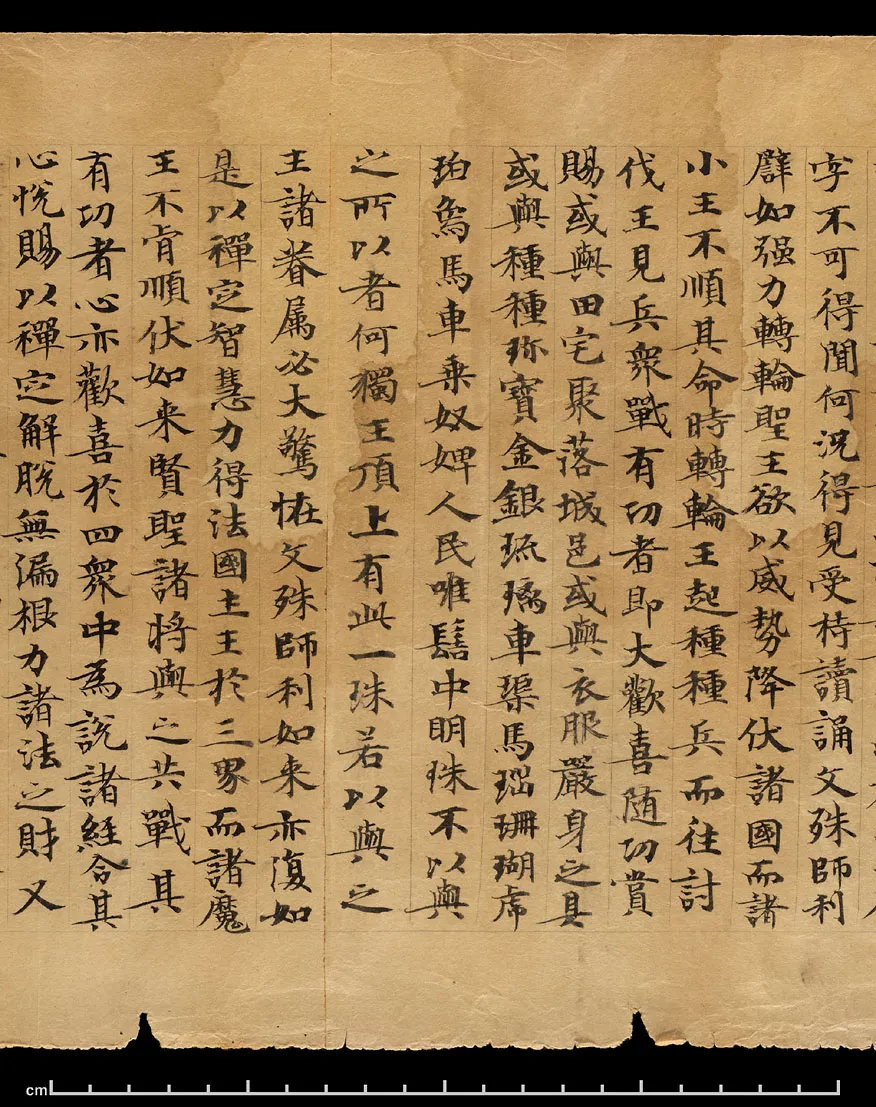 字不可得聞何況得見受持讀誦文殊師利
譬如强力轉輪聖王欲以威勢降伏諸國而諸
小王不順其命時轉輪王起種種兵而往討
伐王見兵衆戰有功者即大歡喜随功賞
賜或與田宅聚落城邑或與衣服嚴身之具
或與種種珎寶金銀琉璃車璖馬瑙珊瑚虎
珀鳥馬車乗奴婢人民唯髻中明珠不以與
之所以者何獨王頂上有此一珠若以與之
王諸眷属必大驚恠文殊師利如来亦復如
是以禪定智慧力得法國土王於三界而諸魔
王不肯順伏如来賢聖諸将與之共戰其
有功者心亦歡喜於四衆中為說諸經令其
心悅賜以禪定解脫無漏根力諸法之財又